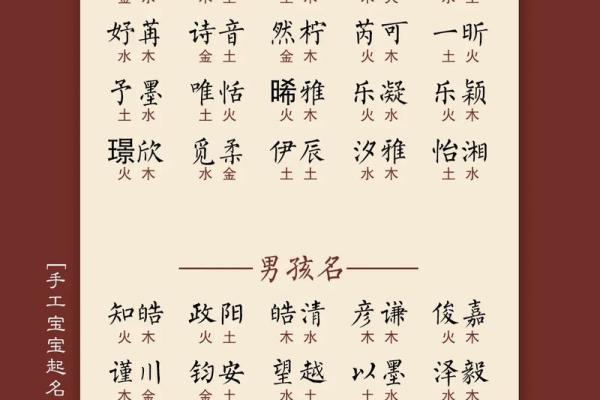 妤苒 诗音 然柠 芮可 一昕
水木 金土 金木 火木 土火
予墨 唯恬 晞雅 乐凝 乐颖
土水 土火 火木 火水 火木
璟欣 觅柔 伊辰 汐雅 怡湘
火木 水金 土土 水木 土水
男孩名
知皓 政阳 皓清 彦谦 俊嘉
火木 火土 木水 木木 火木
谨川 钧安 望越 以墨 泽毅
木金 金土 水土 土水 水木
[手工宝宝起名